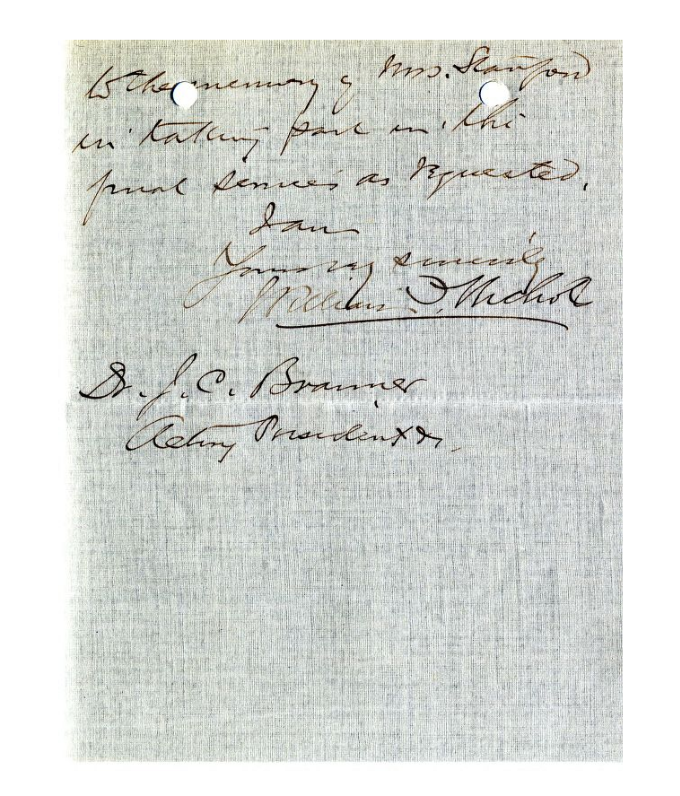 to the memory of Mrs. Stanford
in taking part in the
final services as requested.
I am
Yours very sincerely
William F. Nichols
Dr. J. C. Branner
Acting President &c.